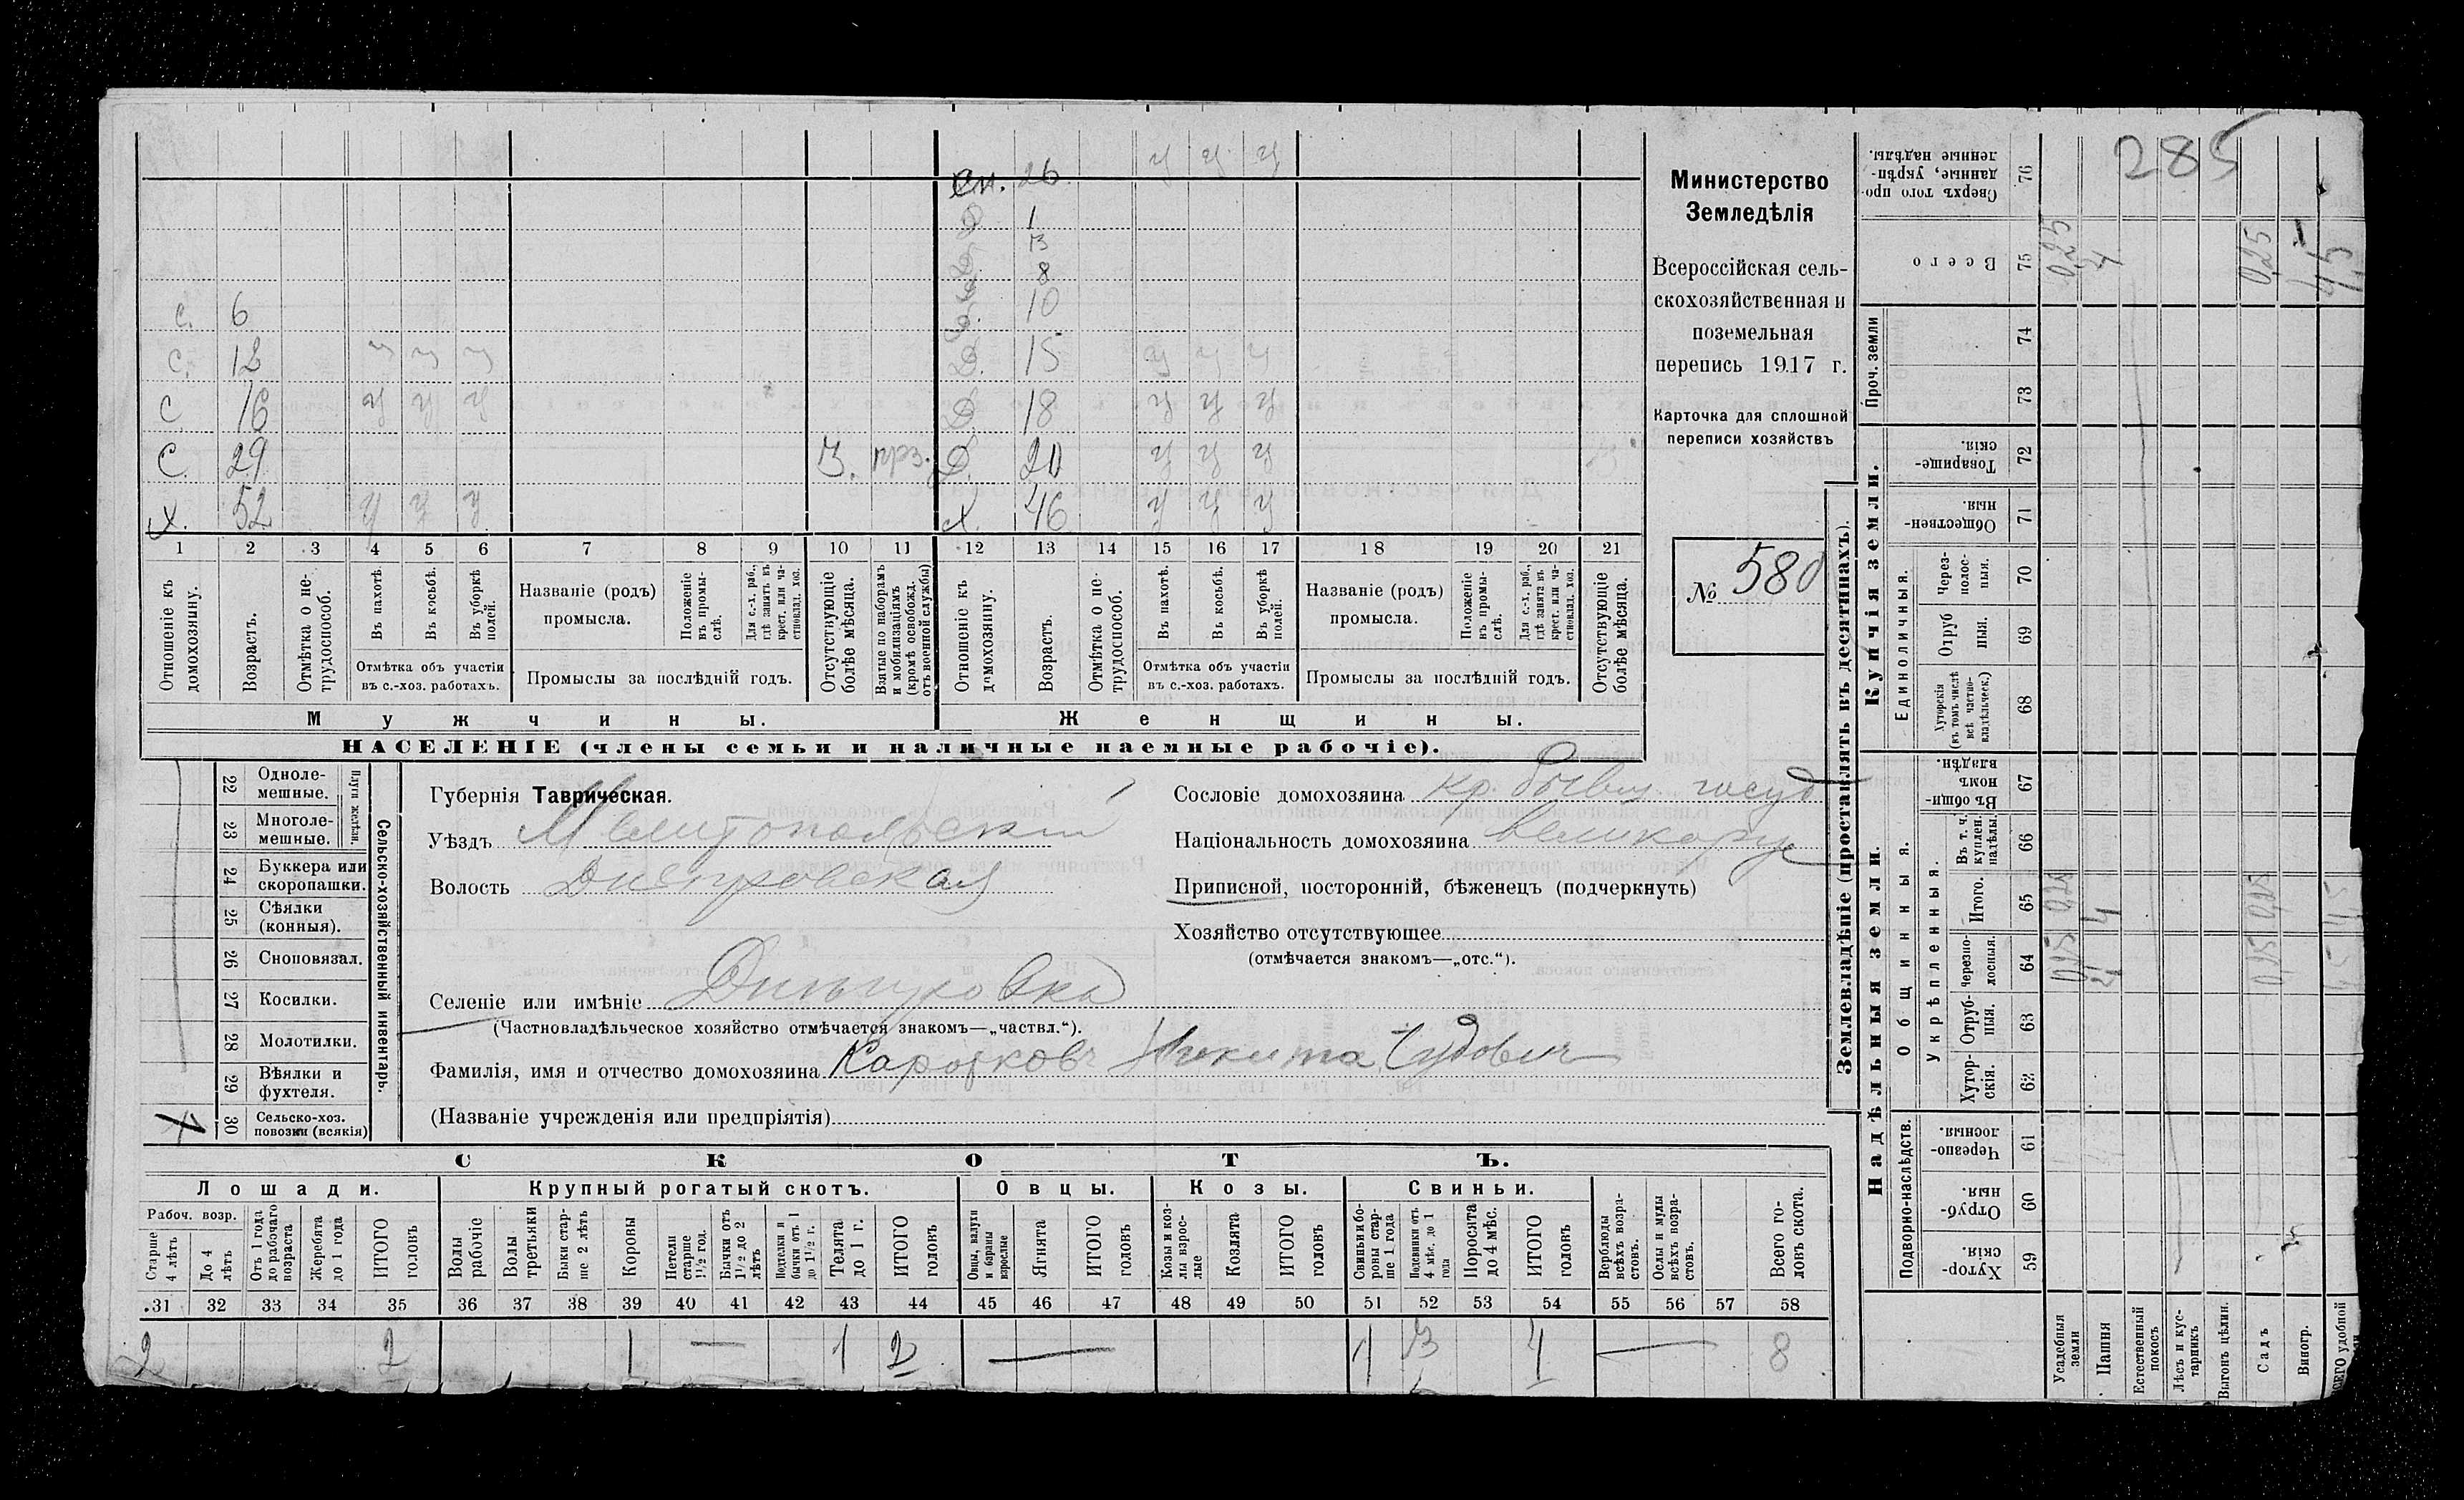 285
Министерство
Земледѣлія
Всероссійская сель-
скохозяйственная и
поземельная
перепись 1917 г.
Карточка для сплошной
переписи хозяйствъ
№ 580
Сн. 26 у у у
Д 1
Д. 3
Д. 8
С. 6 Д. 10
С. 12 у у у Д. 15 у у у
С 16 у у у Д. 18 у у у
С. 29 3. Д. 20 у у у
Х. 52 у у у Х. 46 у у у
1 2 3 4 5 6 7 8 9 10 11 12 13 14 15 16 17 18 19 20 21
Отношеніе къ домохозяину.
Возрастъ.
Отмѣтка о не-трудоспособ.
Въ пахотѣ.
Въ косьбѣ.
Въ уборкѣ полей.
Отмѣтка объ участіи
въ с.-хоз. работахъ.
Названіе (родъ)
промысла.
Положеніе въ промы-слѣ.
Для с.-х. раб., гдѣ занятъ въ крест. или ча-стновлад. хоз.
Промыслы за послѣдній годъ.
Отсутствующіе болѣе мѣсяца.
Взятые по наборамъ и мобилизаціямъ (кромѣ освобожд. отъ военной службы)
Отношеніе къ домохозяину.
Возрастъ.
Отмѣтка о не-трудоспособ.
Въ пахотѣ.
Въ косьбѣ.
Въ уборкѣ полей.
Отмѣтка объ участіи
въ с.-хоз. работахъ.
Названіе (родъ)
промысла.
Положеніе въ промы-слѣ.
Для с.-х. раб., гдѣ занята въ крест. или ча-стновлад. хоз.
Промыслы за послѣдній годъ.
Отсутствующіе болѣе мѣсяца.
Мужчины.
Женщины.
НАСЕЛЕНІЕ (члены семьи и наличные наемные рабочіе).
22 Одноле-мешные.
23 Многоле-мешные.
24 Буккера или скоропашки.
25 Сѣялки (конныя).
26 Сноповязал.
27 Косилки.
28 Молотилки.
29 Вѣялки и фухтеля.
30 Сельско-хоз. повозки (всякія)
Сельско-хозяйственный инвентарь.
Губернія Таврическая.
Уѣздъ Мелитопольскій
Волость Днѣпровская
Селеніе или имѣніе Днѣпровка
(Частновладѣльческое хозяйство отмѣчается знакомъ—„частвл.“).
Фамилія, имя и отчество домохозяина Коротковъ Никита
(Названіе учрежденія или предпріятія)
Сословіе домохозяина кр. бывш. госуд
Національность домохозяина великорус
Приписной, посторонній, бѣженецъ (подчеркнуть)
Хозяйство отсутствующее
(отмѣчается знакомъ—„отс.“).
СКОТЪ.
Лошади. Крупный рогатый скотъ. Овцы. Козы. Свиньи.
Рабоч. возр.
Старше 4 лѣтъ
До 4 лѣтъ
Отъ 1 года до рабочаго возраста
Жеребята до 1 года
ИТОГО головъ
Волы рабочіе
Волы третьяки
Быки стар-ше 2 лѣтъ
Коровы
Нетели старше 1½ год.
Бычки отъ 1½ до 2 лѣтъ
Подтелки и бычки отъ 1 до 1½ г.
Телята до 1 г.
ИТОГО головъ
Овцы, валухи и бараны взрослые
Ягнята
ИТОГО головъ
Козы и коз-лы взрос-лые
Козлята
ИТОГО головъ
Свиньи и бо-ровы стар-ше 1 года
Подсвинки отъ 4 мѣс. до 1 года
Поросята до 4 мѣс.
ИТОГО головъ
Верблюды всѣхъ возра-стовъ.
Ослы и мулы всѣхъ возра-стовъ.
Всего го-ловъ скота.
31 32 33 34 35 36 37 38 39 40 41 42 43 44 45 46 47 48 49 50 51 52 53 54 55 56 57 58
2 2 1 — 1 2 — 1 3 4 — 8
Землевладѣніе (проставлять въ десятинахъ).
Купчія земли.
Надѣльныя земли.
Проч. земли
Единоличныя.
Общинныя.
Укрѣпленныя.
Подворно-наслѣдств.
76 Сверхъ того про-данные, укрѣп-ленные надѣлы.
75 Всего 0,25 4 0,25 4,5
74
73
72 Товарище-скія.
71 Обществен-ныя.
70 Через-полос-ныя.
69 Отруб ныя.
68 Хуторскія (въ томъ числѣ всѣ частно-владѣльческ.)
67 Въ общи-номъ владѣн.
66 Въ т. ч. куплен. надѣлы.
65 Итого. 0,25 4 0,25 4,5
64 Черезпо-лосныя. 0,25 4 0,25 4,5
63 Отруб-ныя.
62 Хутор-скія.
61 Черезпо-лосныя.
60 Отруб-ныя.
59 Хутор-скія.
Усадебныя земли
Пашня
Естественный покосъ
Лѣсъ и кус-тарникъ
Выгонъ цѣлин.
Садъ
Виногр.